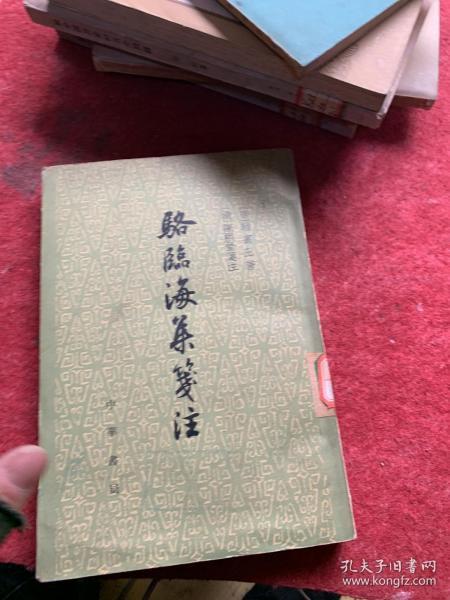 駱臨海集箋注
唐駱賓王著
清陳熙晋箋注
中華書局
孔夫子旧书网
www.kongfz.com